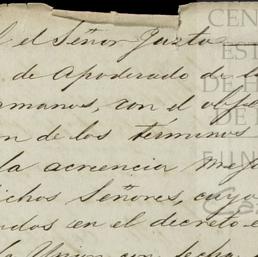 el Señor Justo
de Apoderado de la
ermanos, con el obje
n de los términos
la acreencia
ichos Señores, cuyo
dos en el decreto
la Union con fecha
CEN
EST
DE H
DE
FUN